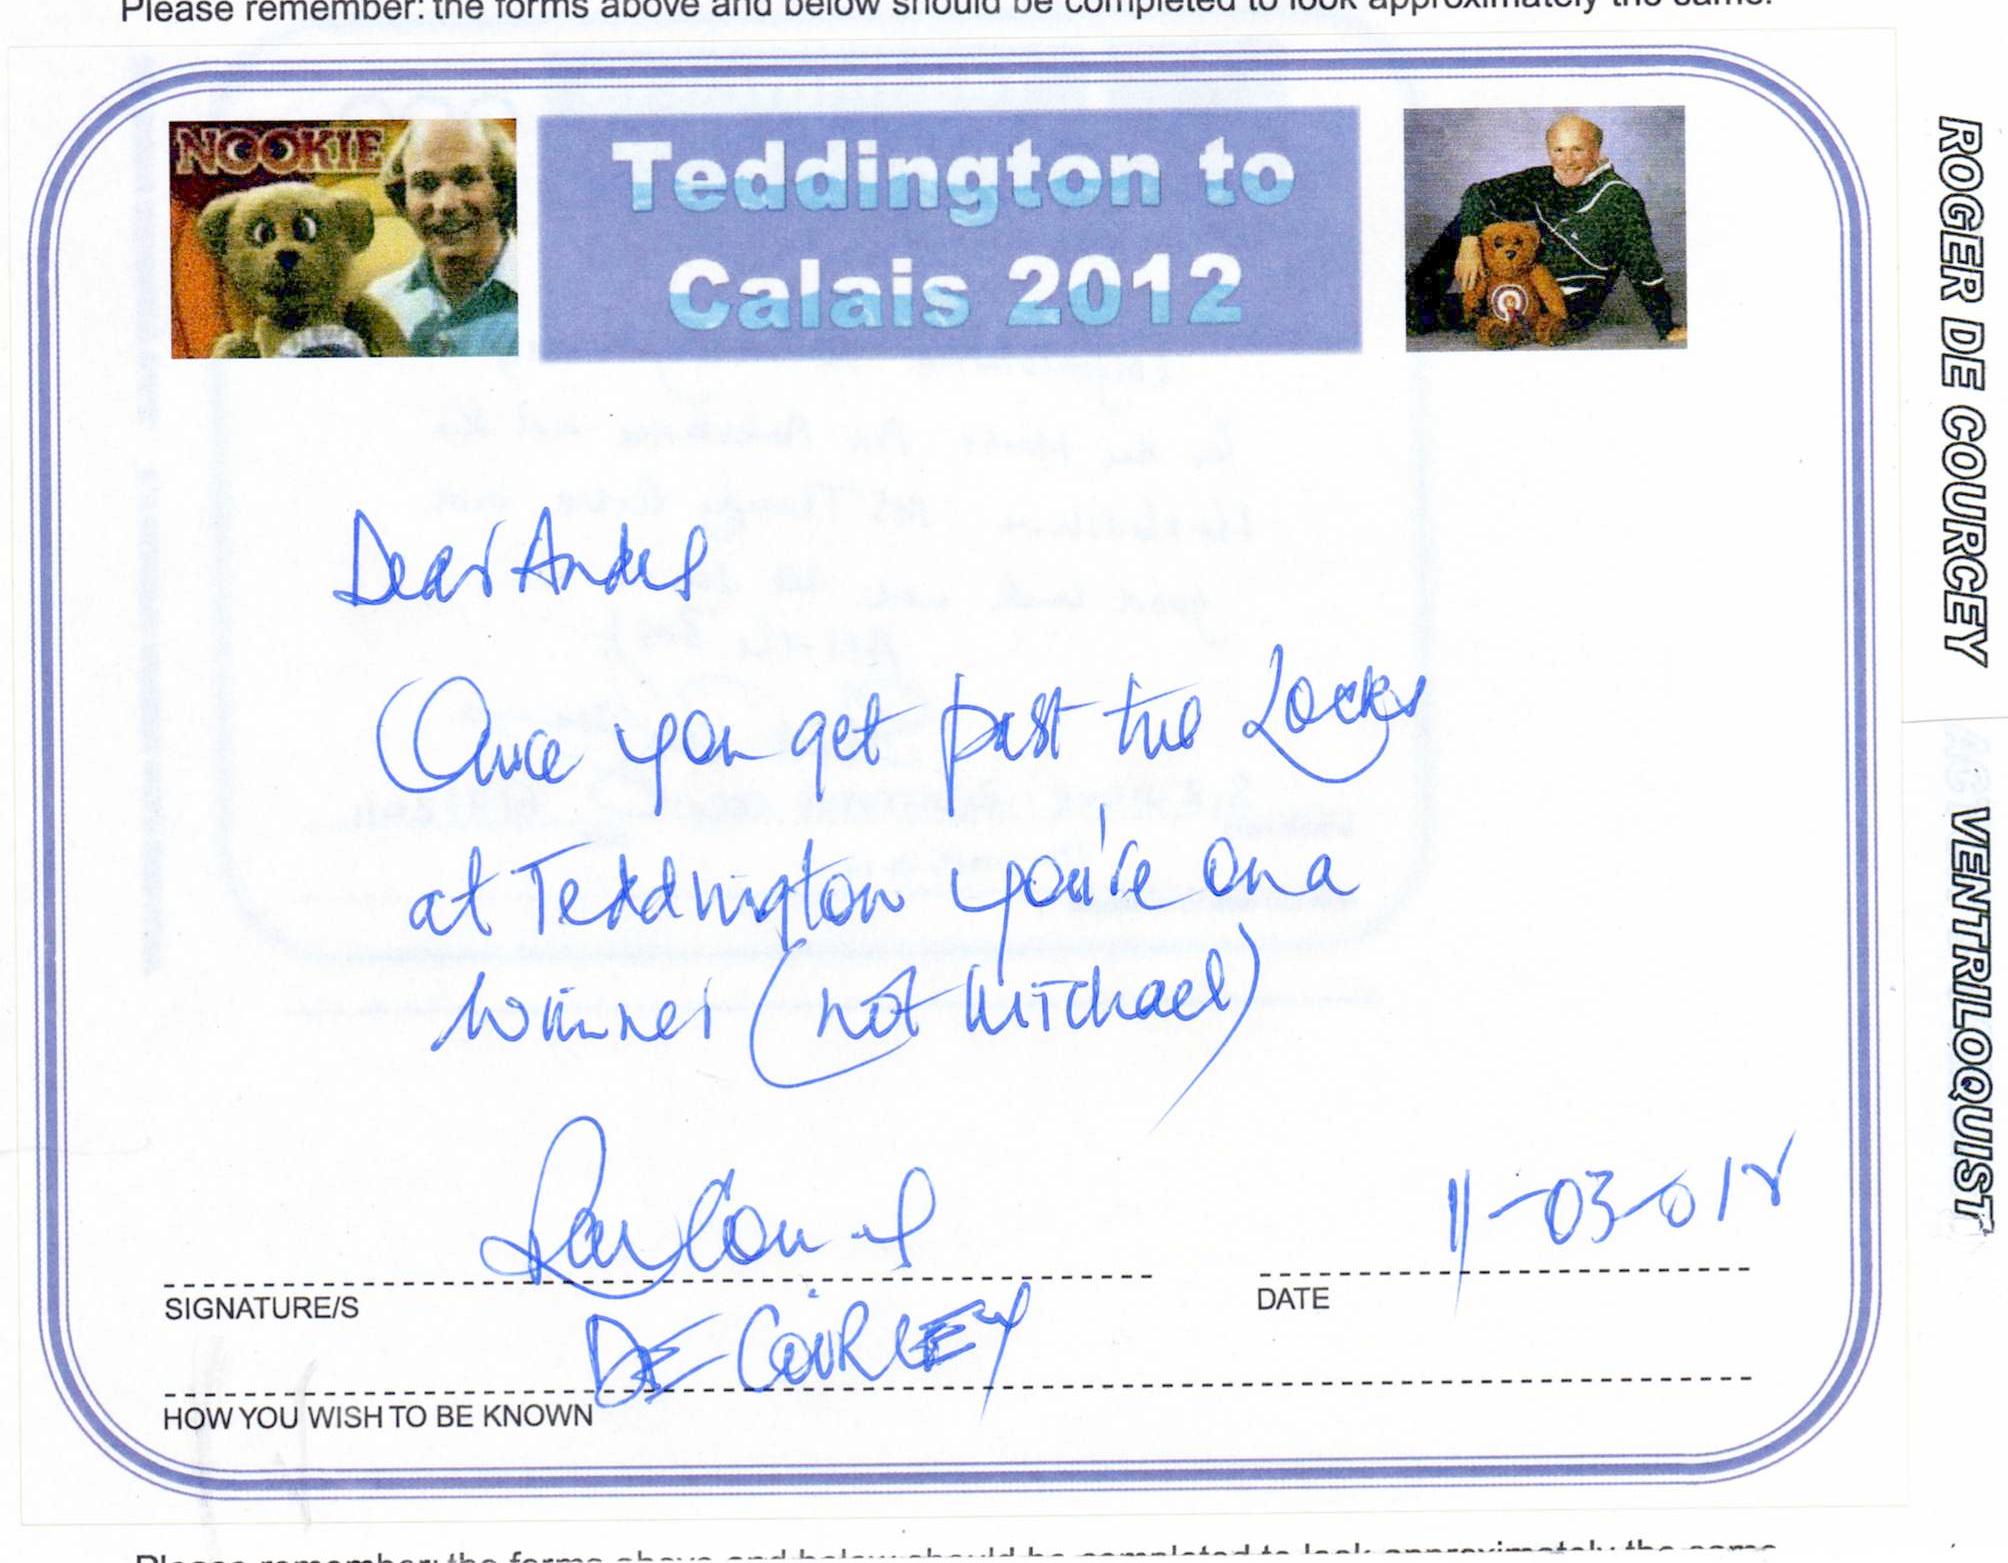 Please remember: the forms above and below should be completed to look approximately the same.
NOOKIE
Teddington to
Calais 2012
ROGER DE COURCEY
VENTRILOQUIST
Dear
Once you get past the Locks
at Teddington you're on a
winner (not Mitchael)
11-03-012
SIGNATURE/S
DATE
DE COURCEY
HOW YOU WISH TO BE KNOWN
Please remember: the forms above and below should be completed to look approximately the same